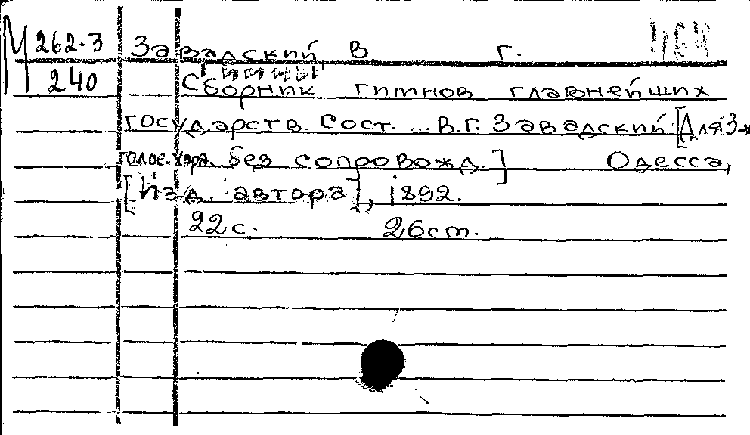 М 262-3 Завадский В Г.
240 Сборник гимнов главнейших
государств. Сост. ... В.Г. Завадский. [Для 3-х
голос. хора без сопровожд.] Одесса,
[Изд. автора], 1892.
22 с. 26 см.